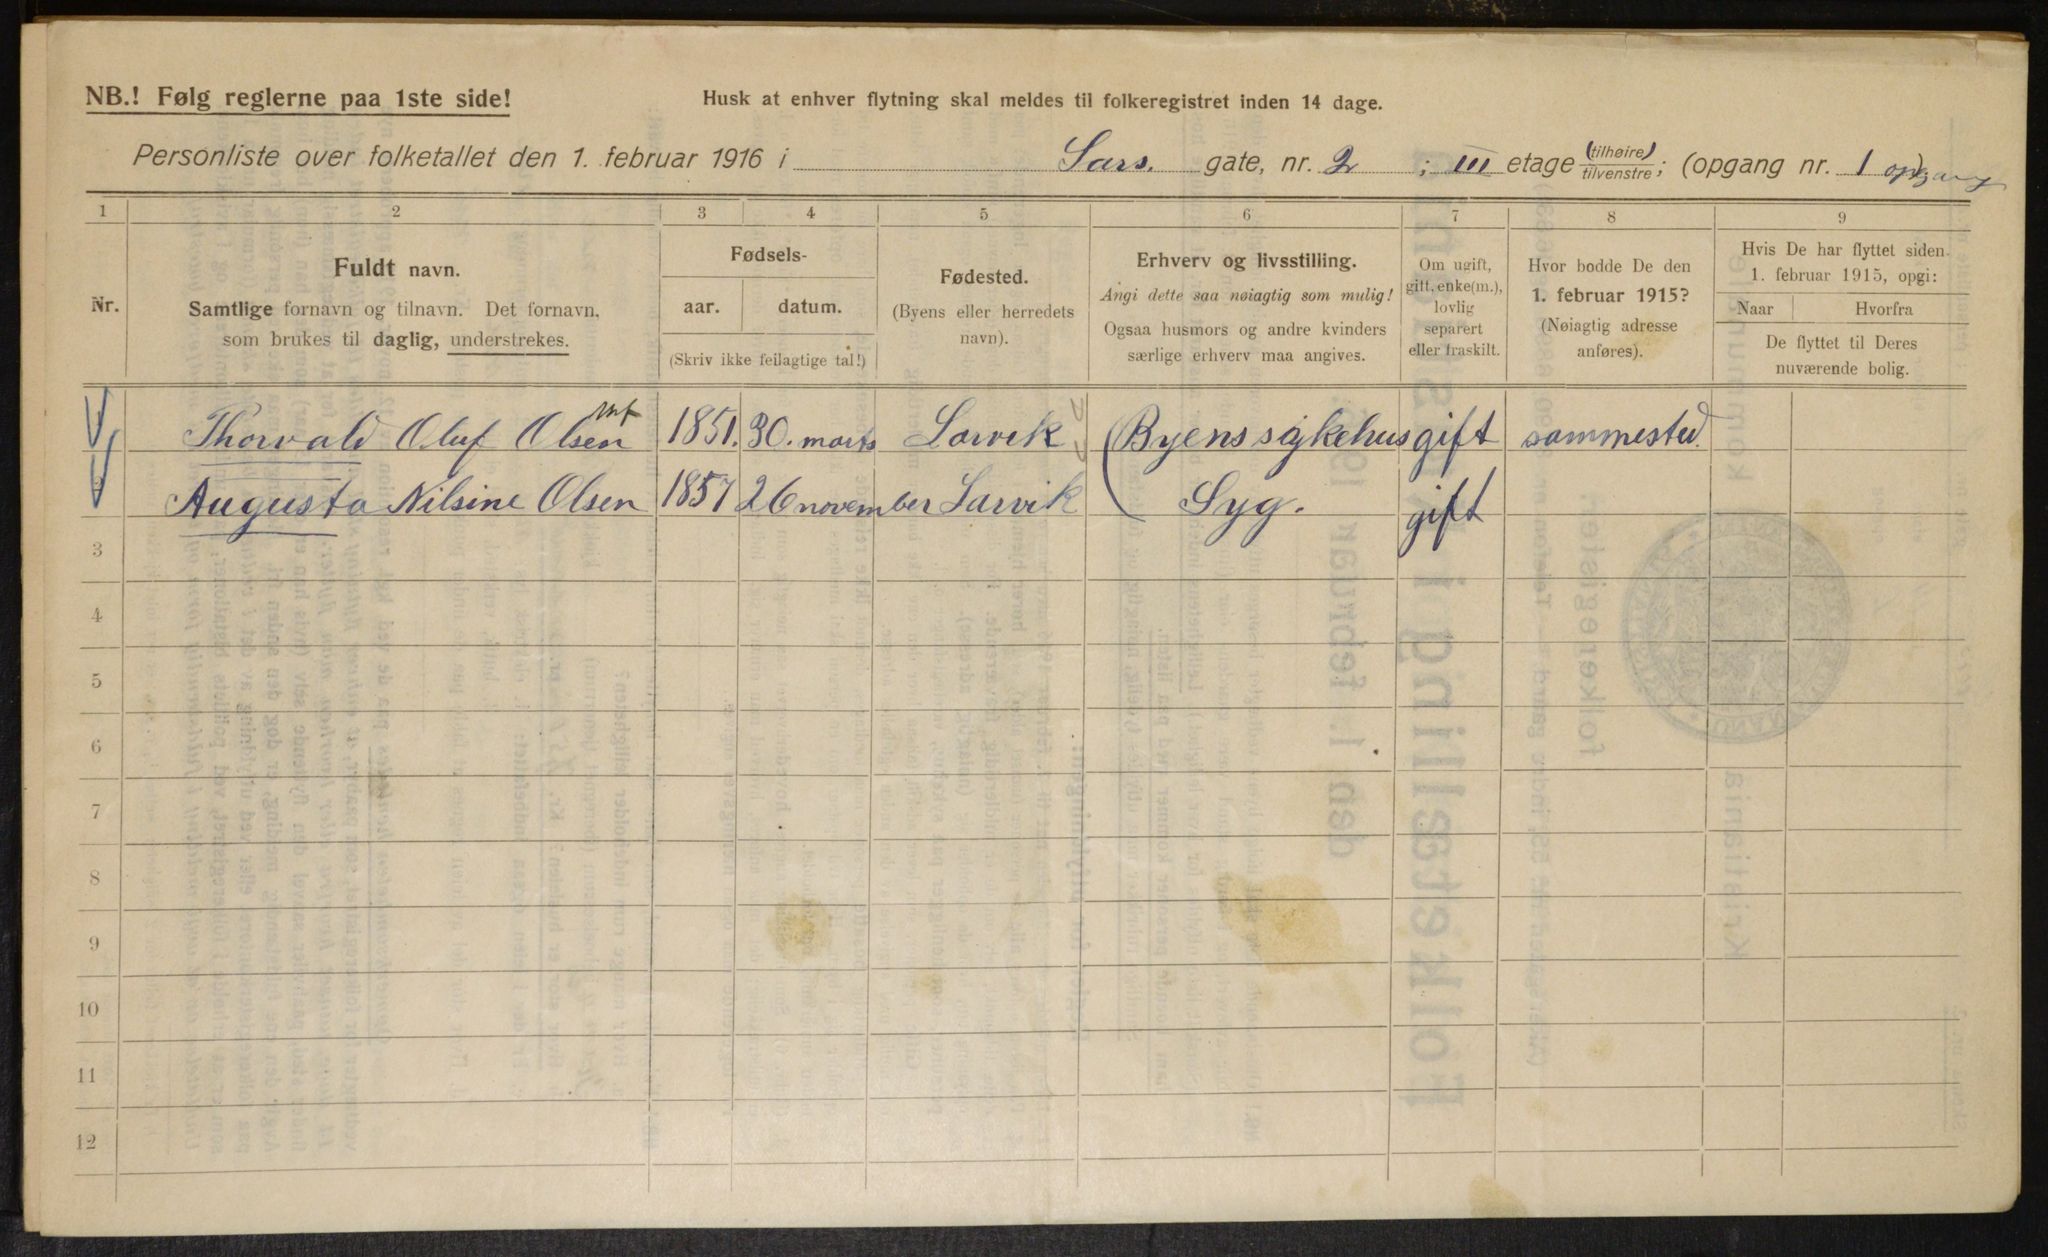 NB.! Følg reglerne paa 1ste side!
Husk at enhver flytning skal meldes til folkeregistret inden 14 dage.
Personliste over folketallet den 1. februar 1916 i Sars. gate, nr. 2 ; III etage (tilhøire) tilvenstre; (opgang nr. 1 opgang
1 2 3 4 5 6 7 8 9
Nr.
Fuldt navn.
Samtlige fornavn og tilnavn. Det fornavn,
som brukes til daglig, understrekes.
Fødsels-
aar. datum.
(Skriv ikke feilagtige tal!)
Fødested.
(Byens eller herredets
navn).
Erhverv og livsstilling.
Angi dette saa nøiagtig som mulig!
Ogsaa husmors og andre kvinders
særlige erhverv maa angives.
Om ugift,
gift, enke(m.),
lovlig
separert
eller fraskilt.
Hvor bodde De den
1. februar 1915?
(Nøiagtig adresse
anføres).
Hvis De har flyttet siden
1. februar 1915, opgi:
Naar Hvorfra
De flyttet til Deres
nuværende bolig.
Thorvald Oluf Olsen 1851. 30. marts Larvik (Byens sykehus gift sammested.
2 Augusta Nilsine Olsen 1857 26 november Larvik Syg. gift
3
4
5
6
7
8
9
10
11
12